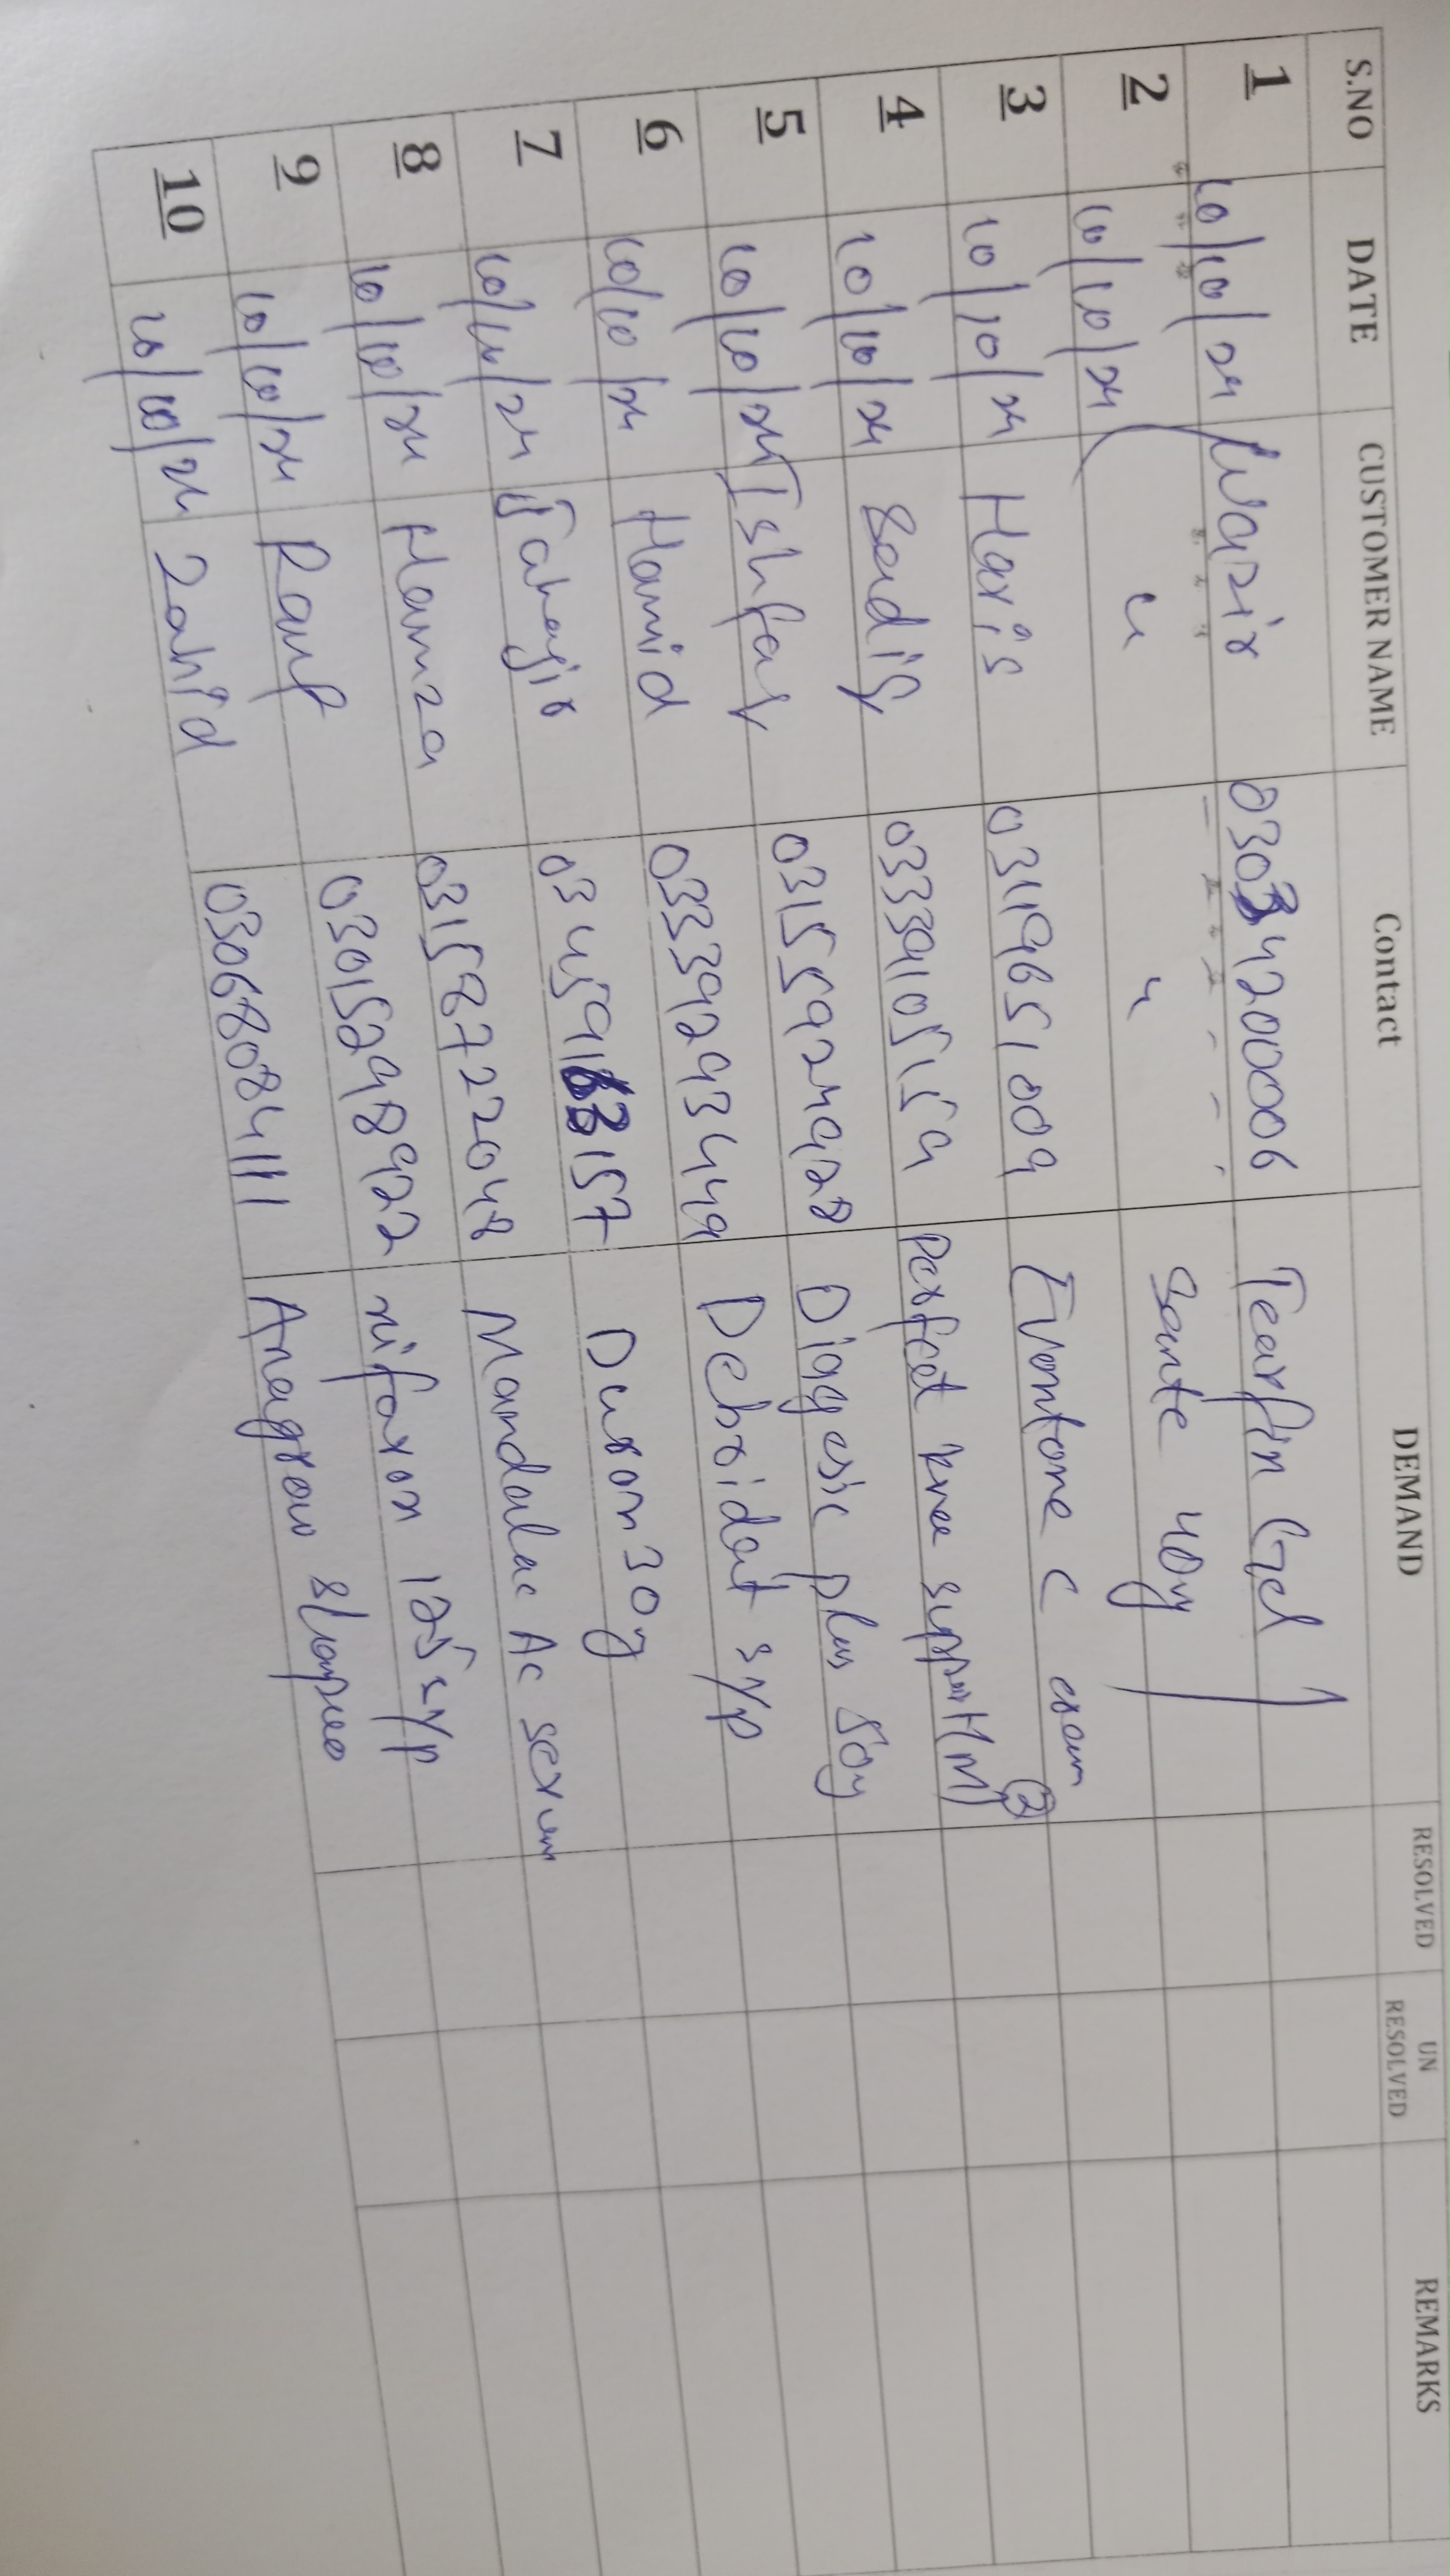 S.NO DATE CUSTOMER NAME Contact DEMAND RESOLVED UN RESOLVED REMARKS
1 10/10/24 Wazir 03034200006 Tearfin Gel
2 10/10/24 " " Sante 40g
3 10/10/24 Haris 03119651009 Evontone C cream
4 10/10/24 Sadiq 03339105159 Perfect knee support (M) 2
5 10/10/24 Ishfaq 03155924928 Diagesic plus 50g
6 10/10/24 Hamid 03339293449 Debridat syp
7 10/10/24 Jahagir 157 Duron 30g
8 10/10/24 Hamza 03158722048 Mandalac Ac serum
9 10/10/24 Rauf 03015298922 nifaxon 125 syp
10 10/10/24 Zahid 03068084111 Anagrow